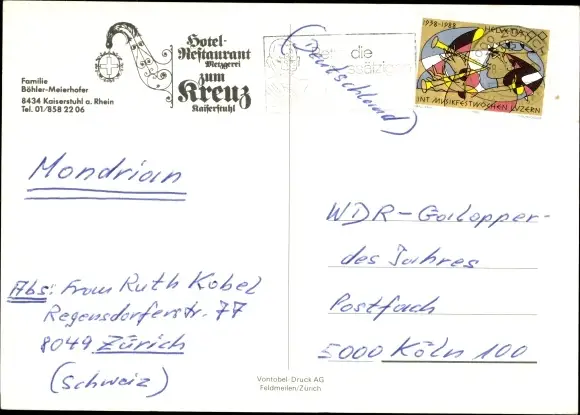 Hotel-
Restaurant
Metzgerei
zum
Kreuz
Kaiserstuhl
Familie
Böhler-Meierhofer
8434 Kaiserstuhl a. Rhein
Tel. 01/858 22 06
(Deutschland)
die
1938-1988
HELVETIA
INT. MUSIKFESTWOCHEN LUZERN
Mondrian
Abs: Frau Ruth Kobel
Regensdorferstr. 77
8049 Zürich
(Schweiz)
WDR-Galopper-
des Jahres
Postfach
5000 Köln 100
Vontobel-Druck AG
Feldmeilen/Zürich